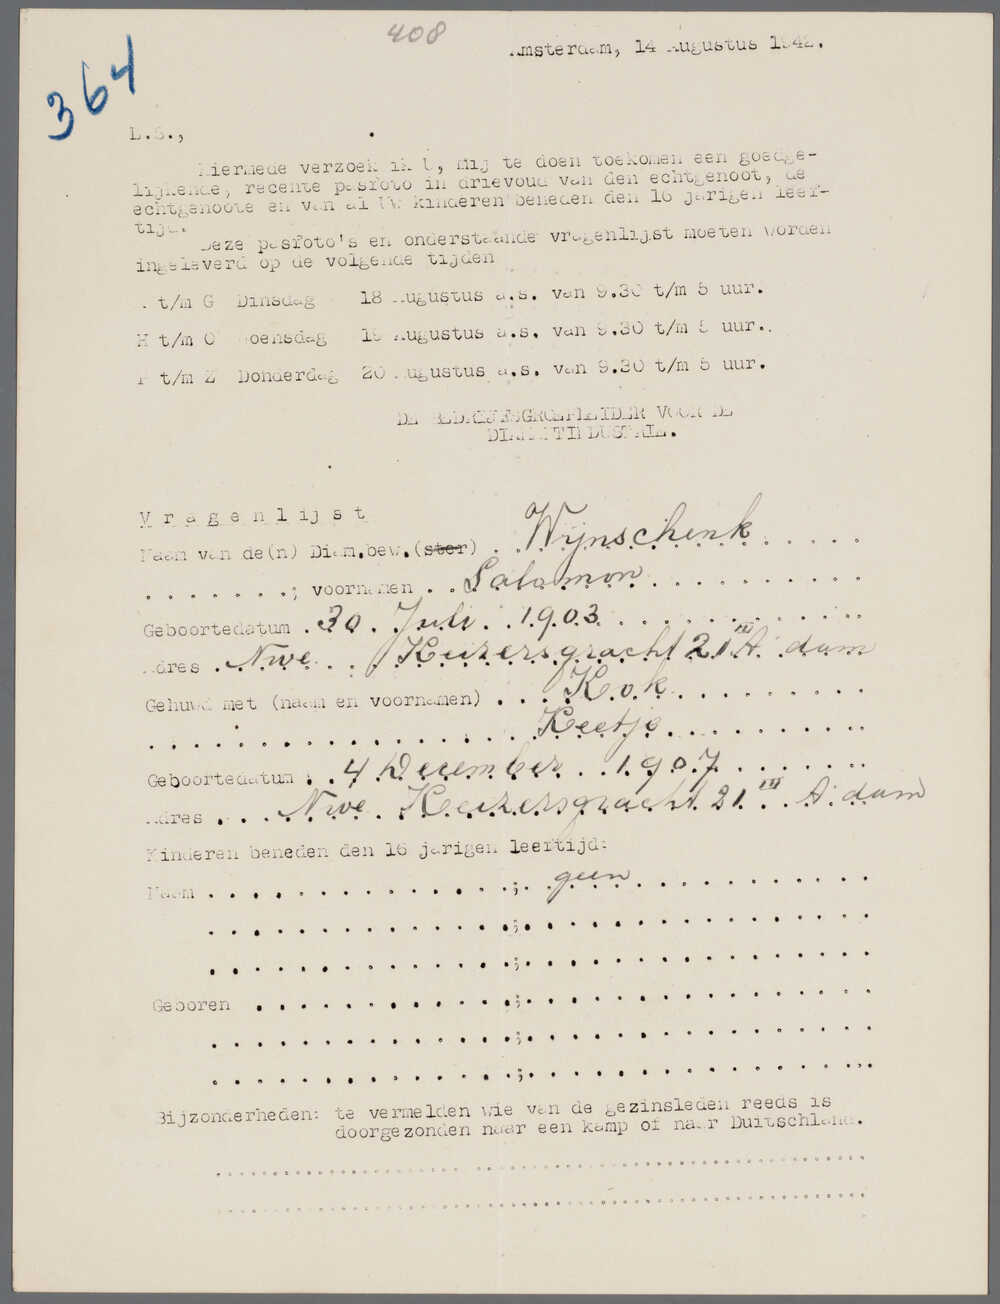 408
364
Amsterdam, 14 Augustus 1942.
L.S.,
Hiermede verzoek ik U, mij te doen toekomen een goedge-
lijkende, recente pasfoto in drievoud van den echtgenoot, de
echtgenoote en van al Uw kinderen beneden den 16 jarigen leef-
tijd.
Deze pasfoto's en onderstaande vragenlijst moeten worden
ingeleverd op de volgende tijden
A t/m G Dinsdag 18 Augustus a.s. van 9.30 t/m 5 uur.
H t/m O Woensdag 19 Augustus a.s. van 9.30 t/m 5 uur.
P t/m Z Donderdag 20 Augustus a.s. van 9.30 t/m 5 uur.
DE BEDRIJFSGROEPLEIDER VOOR DE
DIAMANTINDUSTRIE.
Vragenlijst
Naam van de(n) Diam.bew.(ster) . . Wijnschenk . . . . .
. . . . . . . ; voornamen . . Salamon . . . . . . . . .
Geboortedatum . 30 . Juli . . 1903 . . . . . . . . . . .
Adres . Nwe . . Keizersgracht 21 III A'dam
Gehuwd met (naam en voornamen) . . . Kok . . . . . . . . .
. . . . . . . . . . . . . . . . Keetje . . . . . . . . .
Geboortedatum . . 4 December . . 1907 . . . . . . .
Adres . . . Nwe. Keizersgracht 21 III . A'dam
Kinderen beneden den 16 jarigen leeftijd:
Naam . . . . . . . . . . . . . . ; . geen . . . . . . . . . . .
. . . . . . . . . . . . . . ; . . . . . . . . . . . . . . . .
. . . . . . . . . . . . . . ; . . . . . . . . . . . . . . . .
Geboren . . . . . . . . . . . . ; . . . . . . . . . . . . . . . .
. . . . . . . . . . . . . . ; . . . . . . . . . . . . . . . .
. . . . . . . . . . . . . . ; . . . . . . . . . . . . . . . .
Bijzonderheden: te vermelden wie van de gezinsleden reeds is
doorgezonden naar een kamp of naar Duitschland.